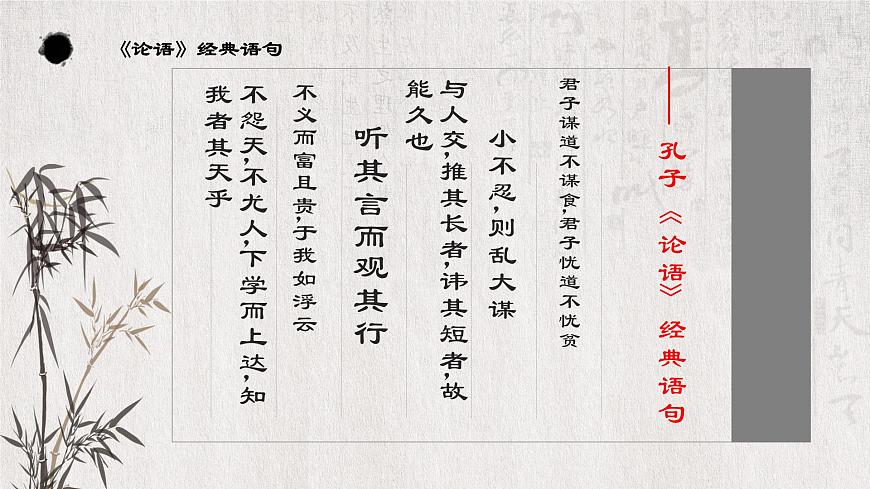 《论语》经典语句
孔子《论语》经典语句
君子谋道不谋食,君子忧道不忧贫
小不忍,则乱大谋
与人交,推其长者,讳其短者,故
能久也
听其言而观其行
不义而富且贵,于我如浮云
不怨天,不尤人,下学而上达,知
我者其天乎